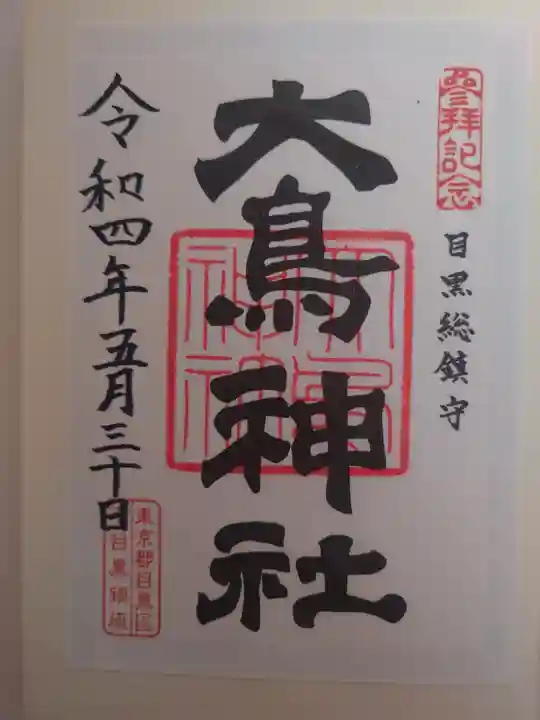 參拜記念
目黒総鎮守
大鳥神社
大鳥神社
令和四年五月三十日
東京都目黒区
目黒鎮座